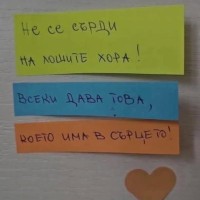 Не се сърди
на лошите хора!
Всеки дава това,
което има в сърцето!